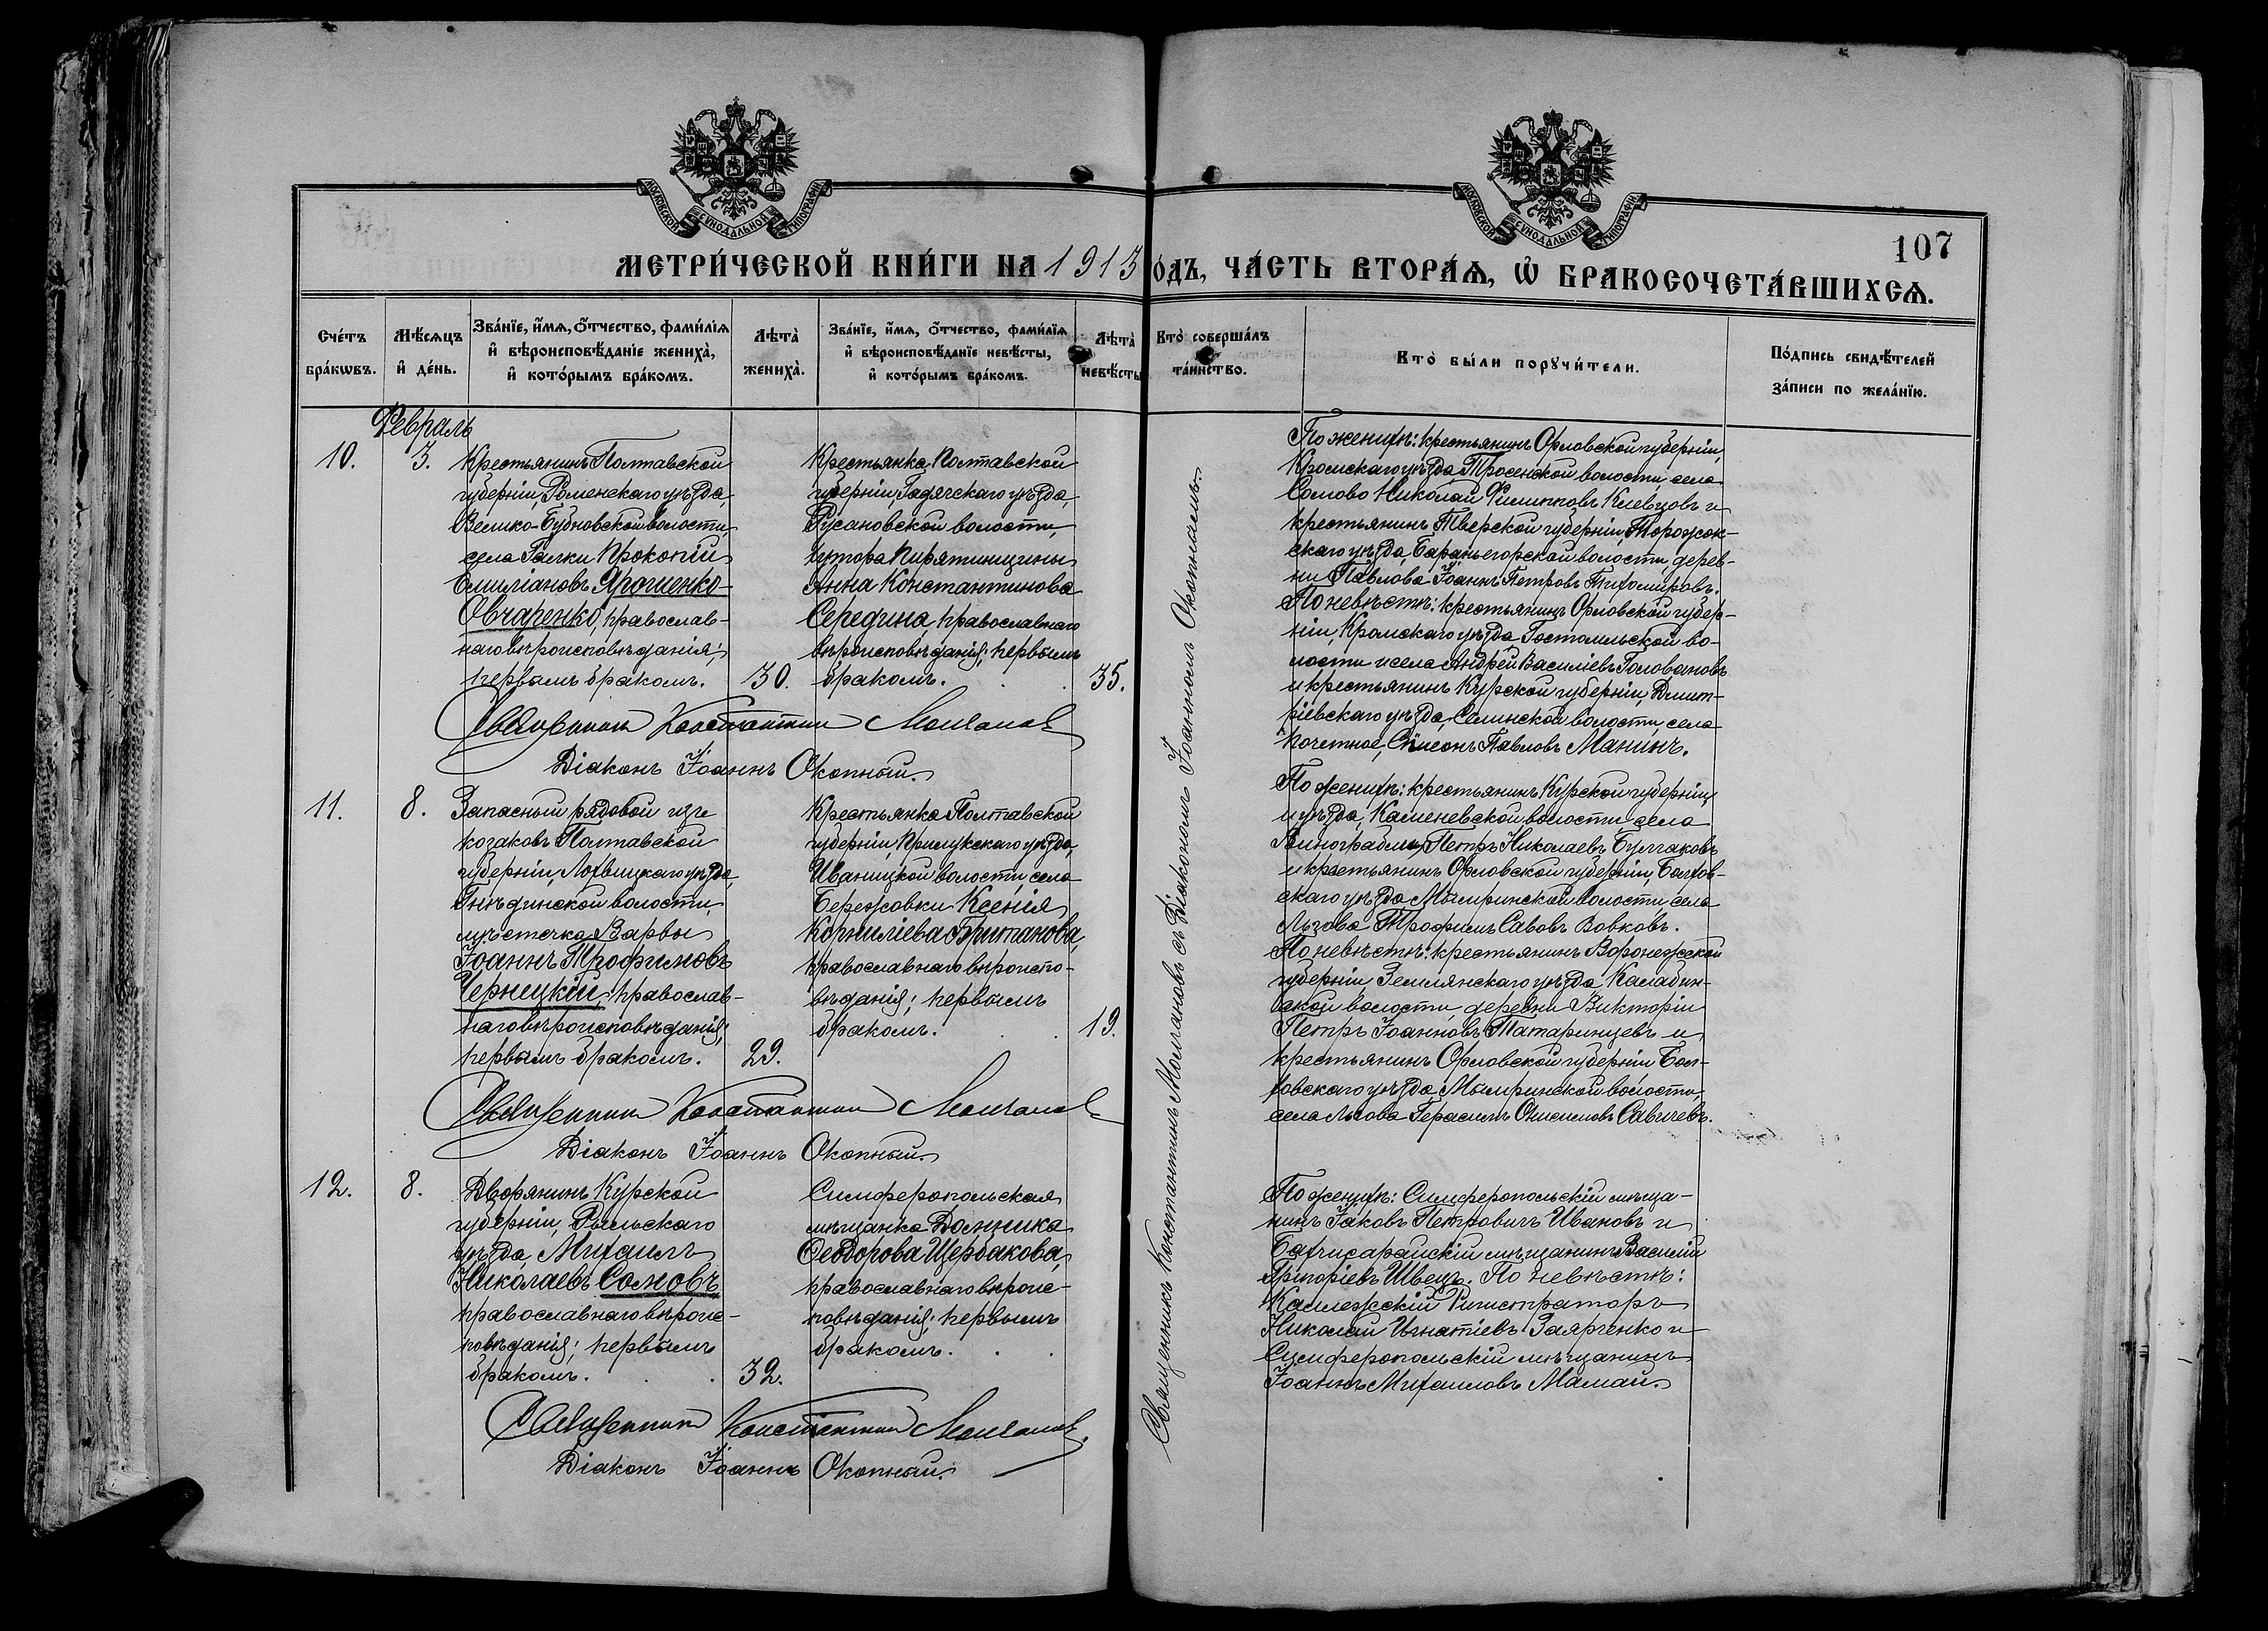 МОСКОВСКОЙ СѴНОДАЛЬНОЙ ТИПОГРАФІИ
МОСКОВСКОЙ СѴНОДАЛЬНОЙ ТИПОГРАФІИ
107
МЕТРИ́ЧЕСКОЙ КНИ́ГИ НА 1913 ОДЪ, ЧА́СТЬ ВТОРА́Ѧ, Ѡ БРАКОСОЧЕТА́ВШИХСѦ.
Сче́тъ бра́кѡвъ.
Мѣ́сѧцъ и҆ де́нь.
Зва́нїе, и҆́мѧ, ѻ҆́тчество, фами́лїѧ и҆ вѣроисповѣ́данїе жениха̀, и҆ кото́рымъ бра́комъ.
Лѣта̀ жениха̀.
Зва́нїе, и҆́мѧ, ѻ҆́тчество, фами́лїѧ и҆ вѣроисповѣ́данїе невѣ́сты, и҆ кото́рымъ бра́комъ.
Лѣта̀ невѣ́сты
Кто̀ соверша́лъ та́инство.
Кто̀ бы́ли порꙋчи́тели.
По́дпись свидѣ́телей за́писи по жела́нїю.
Февраль
10.
3.
Крестьянинъ Полтавской
губерніи, Роменскаго уѣзда,
Велико-Бубновской волости,
села Галки Прокопій
Емиліановъ Ярошенко-
Овчаренко, православ-
наго вѣроисповѣданія;
первымъ бракомъ.
30.
Крестьянка, Полтавской
губерніи, Гадячскаго уѣзда,
Русановской волости,
хутора Пирятинщины
Анна Константинова
Середина, православнаго
вѣроисповѣданія; первымъ
бракомъ.
35.
Священникъ Константинъ Молчановъ съ Діакономъ Іоанномъ Окопнымъ.
По женихѣ: крестьянинъ Орловской губерніи,
Кромскаго уѣзда, Тросенской волости, села
Сомово Николай Филипповъ Киевцовъ и
крестьянинъ Тверской губерніи, Торожок-
скаго уѣзда, Бараньегорской волости, дерев-
ни Павлова Іоаннъ Петровъ Тихомировъ.
По невѣстѣ: крестьянинъ Орловской губер-
ніи, Кромскаго уѣзда, Гостомльской во-
лости и села Андрей Василіевъ Головановъ
и крестьянинъ Курской губерніи, Дмит-
ріевскаго уѣзда, Селинской волости, села
Почетное, Сѵмеонъ Павловъ Манинъ.
Священникъ Константинъ Молчановъ
Діаконъ Іоаннъ Окопный.
11.
8.
Запасный рядовой изъ
козаковъ Полтавской
губерніи, Лохвицкаго уѣзда,
Гнѣдинской волости,
мѣстечка Варвы
Іоаннъ Трофимовъ
Чернецкій, православ-
наго вѣроисповѣданія;
первымъ бракомъ.
29.
Крестьянка Полтавской
губерніи, Прилукскаго уѣзда,
Иваницкой волости, села
Бережовки Ксенія
Корниліева Британова,
православнаго вѣроиспо-
вѣданія; первымъ
бракомъ.
19.
По женихѣ: крестьянинъ Курской губерніи
и уѣзда, Каменевской волости села
Петръ Николаевъ Булгаковъ
и крестьянинъ Орловской губерніи, Болхов-
скаго уѣзда Мымринской волости села
Льгова Трофимъ Савовъ Вовковъ.
По невѣстѣ: крестьянинъ Воронежской
губерніи, Землянскаго уѣзда, Калабин-
ской волости, деревни Викторіи
Петръ Іоанновъ Татаринцевъ и
крестьянинъ Орловской губерніи Бол-
ховскаго уѣзда, Мымринской волости,
села Льгова Герасимъ Онисимовъ Савичевъ.
Священникъ Константинъ Молчановъ
Діаконъ Іоаннъ Окопный.
12.
8.
Дворянинъ Курской
губерніи, Рыльскаго
уѣзда, Михаилъ
Николаевъ Сомовъ
православнаго вѣроис-
повѣданія; первымъ
бракомъ.
32.
Симферопольская
мѣщанка Домника
Ѳеодорова Щербакова,
православнаго вѣроис-
повѣданія; первымъ
бракомъ.
По женихѣ: Симферопольскій мѣща-
нинъ Іаковъ Петровичъ Ивановъ и
Бахчисарайскій мѣщанинъ Василій
Григоріевъ Швецъ. По невѣстѣ:
Каллежскій Ригистраторъ
Николай Игнатіевъ Заярченко и
Симферопольскій мѣщанинъ
Іоаннъ Михаиловъ Мамай.
Священникъ Константинъ Молчановъ.
Діаконъ Іоаннъ Окопный.